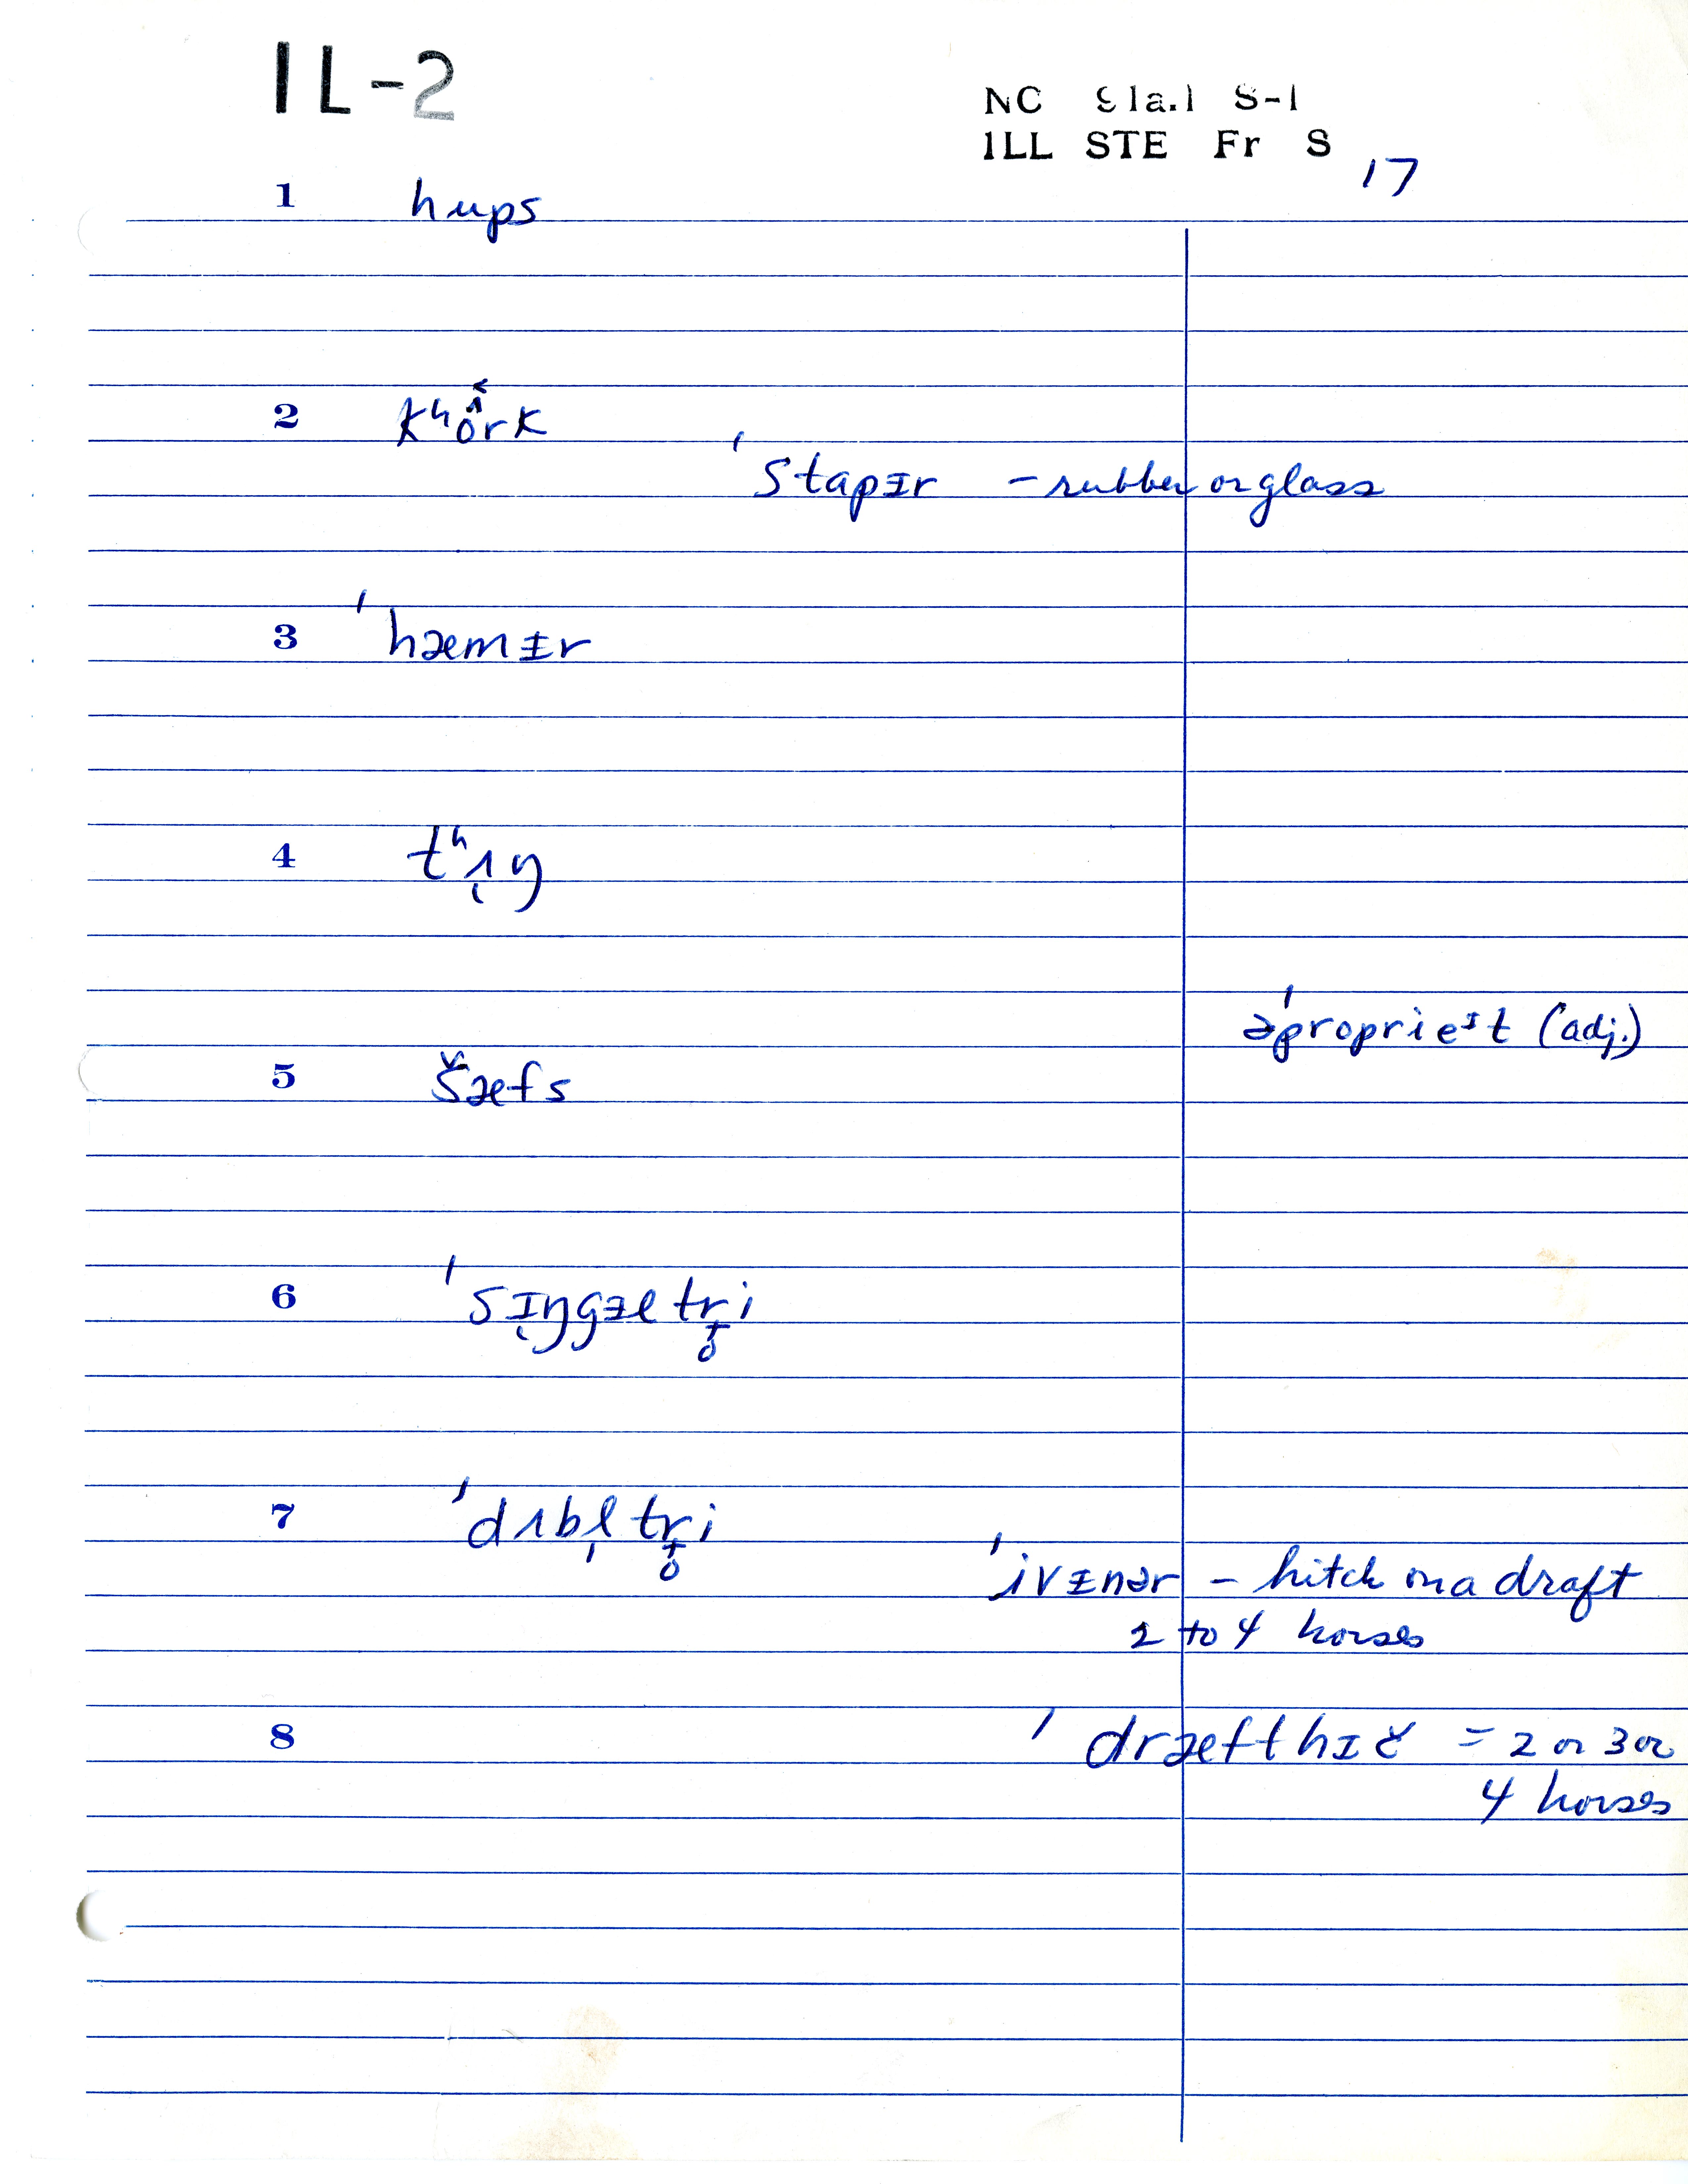 IL-2
NC 91a.1 S-1
ILL STE Fr S
17
1 hups
2 kʰôrk
'stapɪr – rubber or glass
3 'hæmɪr
4 tʰʌŋ
ə'proprieᶦt (adj.)
5 šæfs
6 'sɪŋgɪltr̥i
7 'dʌbl̩tr̥i
'ivɪnər – hitch on a draft
2 to 4 horses
8 'dræfthɪč = 2 or 3 or
4 horses